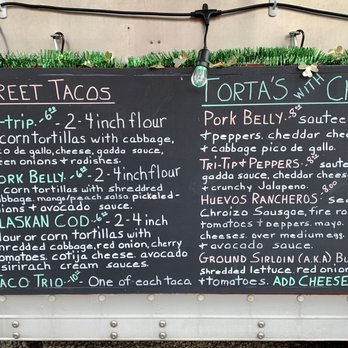 REET TACOS
-trip.-6.00- 2-4 inch flour
corn tortillas with cabbage,
o de gallo, cheese, gadda sauce,
een onions & radishes.
ORK BELLY.-6.00- 2-4 inch flour
corn tortillas with shredded
cabbage. mango/peach salsa pickeled-
nions + avocado sauce.
ALASKAN COD.-6.00-2-4 inch
flour or corn tortillas with
hredded cabbage, red onion, cherry
tomatoes. cotija cheese. avocado
sirirach cream sauces.
TACO TRIO. - One of each taco
TORTA'S WITH C
PORK BELLY. sautee
+ peppers. cheddar chee
+ cabbage pico de gallo.
TRI-TIP + PEPPERS.
gadda sauce, cheddar cheese
+ crunchy Jalapeno.
HUEVOS RANCHEROS.
Chroizo Sausgae, fire ro
tomatoes + peppers. mayo.
cheeses. over medium egg.
+ avocado sauce.
GROUND SIRLOIN (A.K.A) BU
shredded lettuce. red onion
+tomatoes. ADD CHEESE